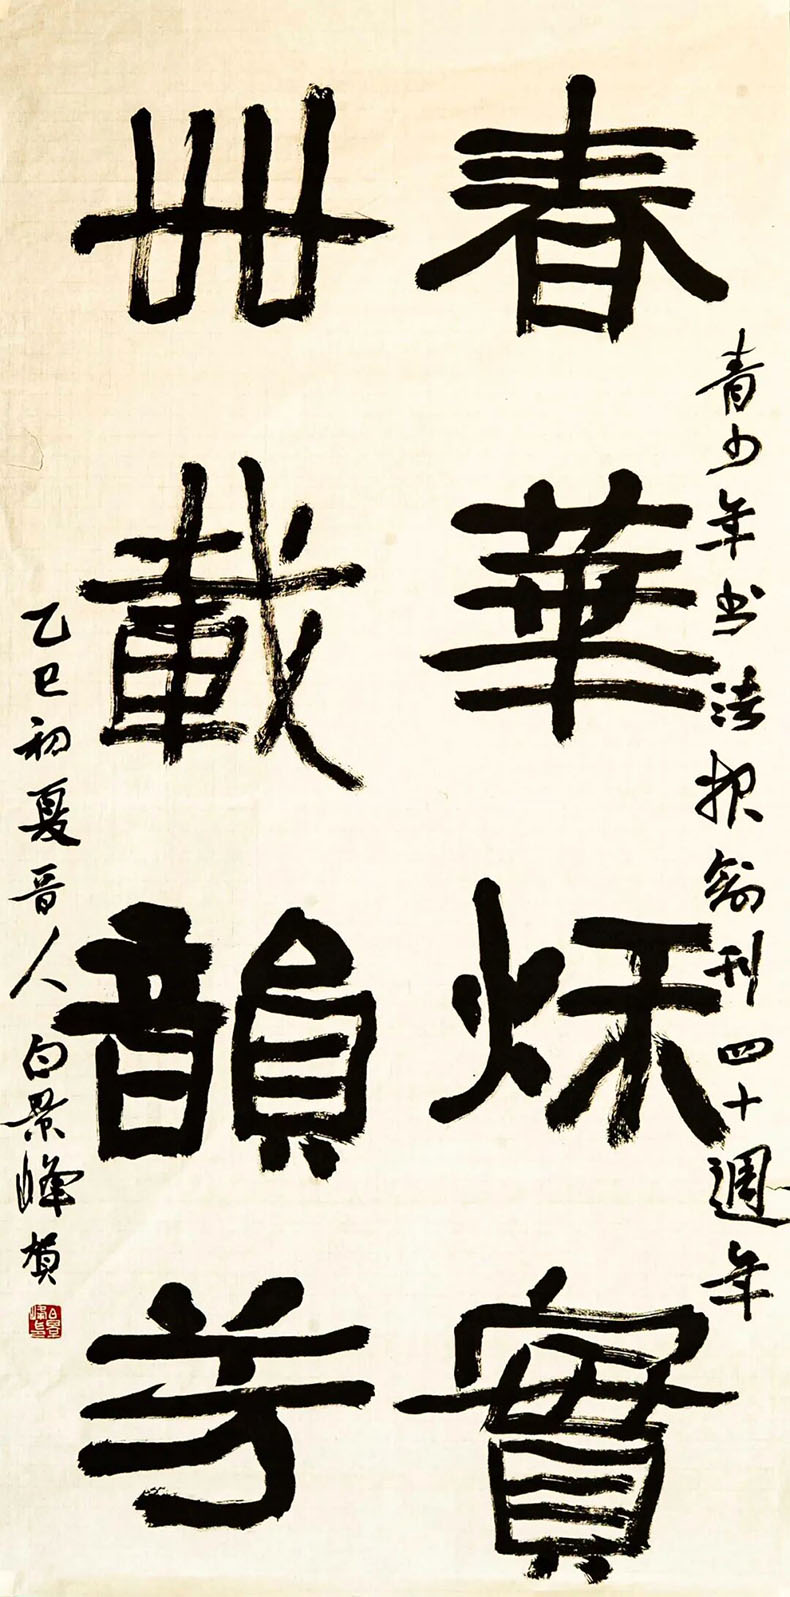 春華秌實
卌載韻芳
青少年书法报創刊四十週年
乙巳初夏晋人白景峰賀